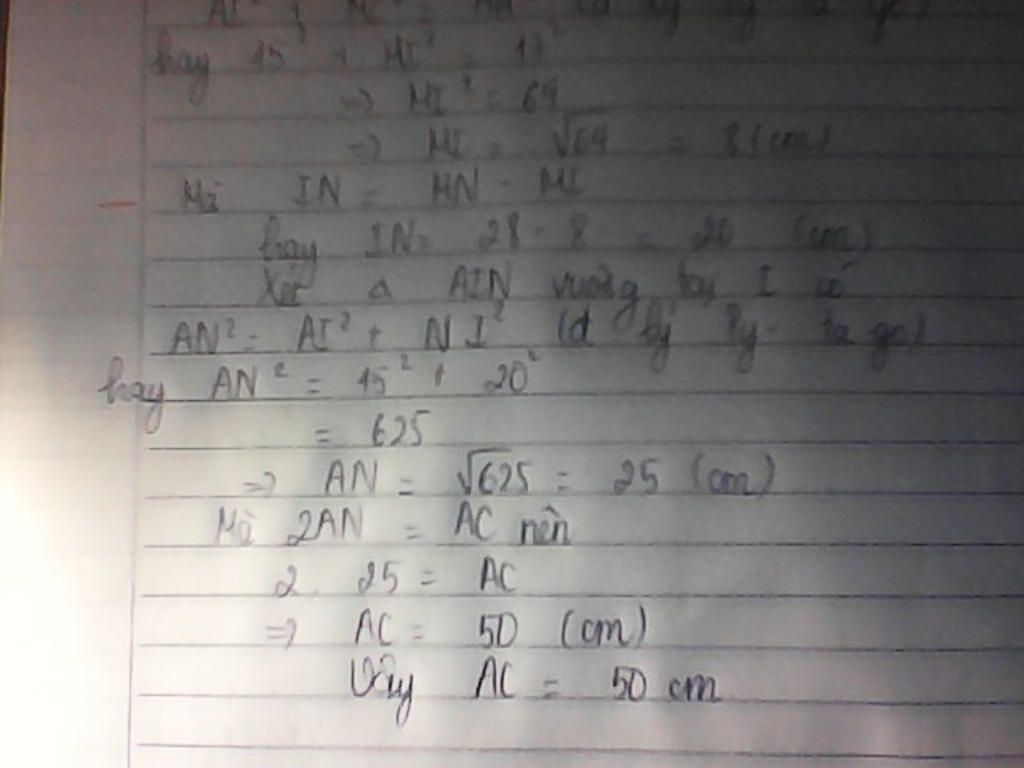 AI² + MI² = AM² (đ lý Py ta go)
hay 15² + MI² = 17²
=> MI² = 64
=> MI = √64 = 8 (cm)
Mà IN = MN - MI
hay IN = 28 - 8 = 20 (cm)
Xét Δ AIN vuông tại I có
AN² = AI² + NI² (đ lý Py - ta go)
hay AN² = 15² + 20²
= 625
=> AN = √625 = 25 (cm)
Mà 2AN = AC nên
2. 25 = AC
=> AC = 50 (cm)
Vậy AC = 50 cm